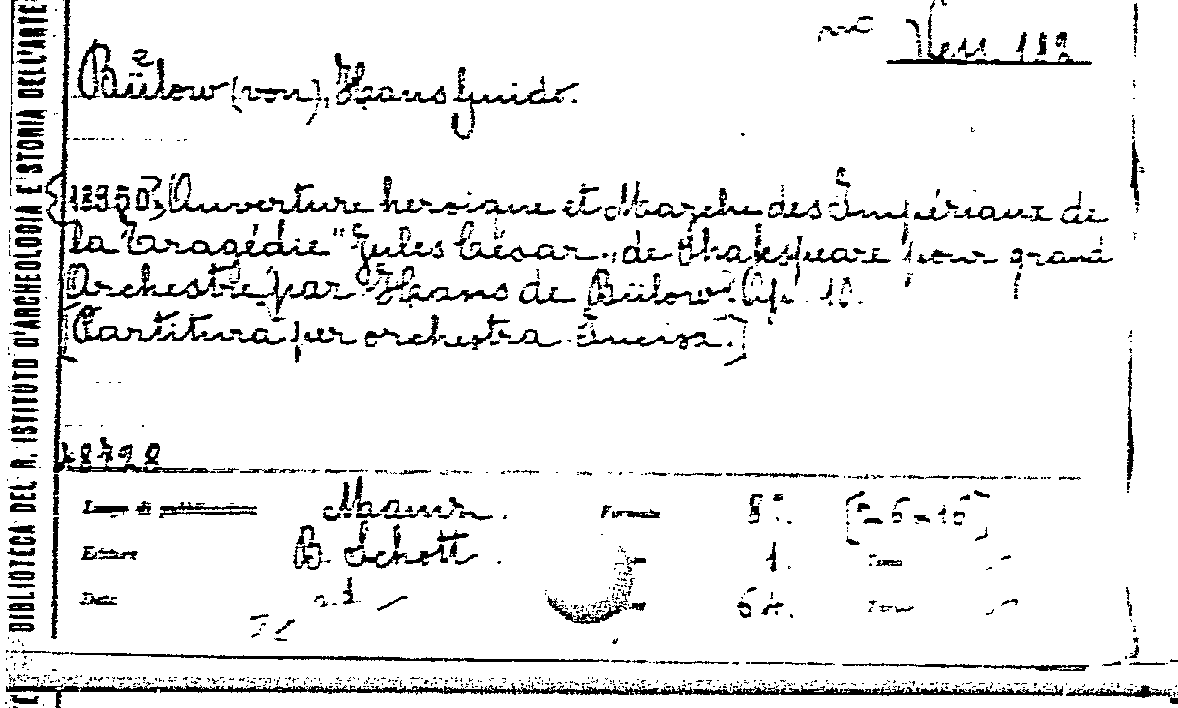 BIBLIOTECA DEL R. ISTITUTO D'ARCHEOLOGIA E STORIA DELL'ARTE
Bülow (von), Hans Guido.
Ouverture heroique et Marche des Impériaux de
la Tragédie "Jules César„ de Shakspeare pour grand
Orchestre par Hans de Bülow. Op. 10.
[Partitura per orchestra. Incisa.]
18728
Luogo di pubblicazione Mainz. Formato 8°.
Editore B. Schott. 1. Tomo
Data s.d. 64.